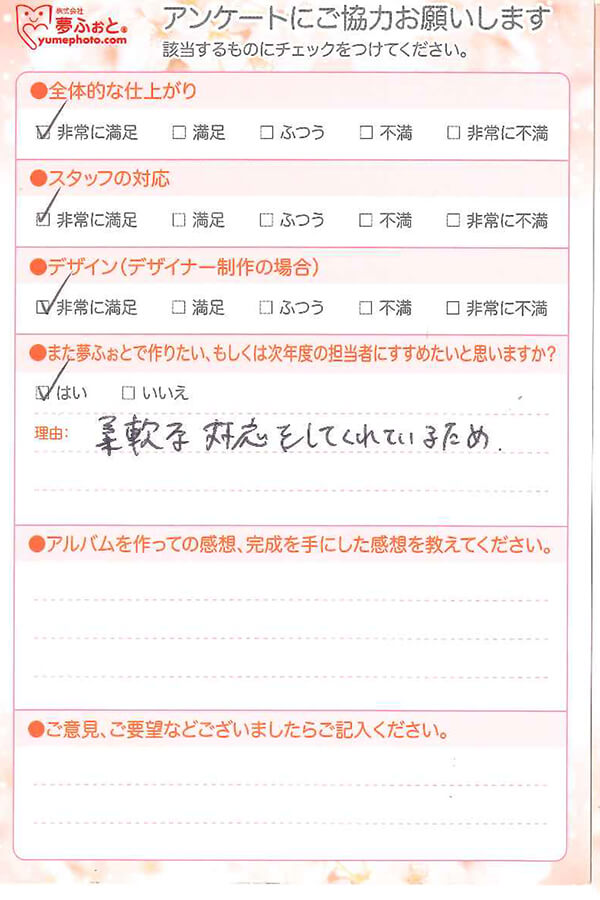 株式会社
夢ふぉと®
yumephoto.com
アンケートにご協力お願いします
該当するものにチェックをつけてください。
●全体的な仕上がり
☑ 非常に満足 □ 満足 □ ふつう □ 不満 □ 非常に不満
●スタッフの対応
☑ 非常に満足 □ 満足 □ ふつう □ 不満 □ 非常に不満
●デザイン(デザイナー制作の場合)
☑ 非常に満足 □ 満足 □ ふつう □ 不満 □ 非常に不満
●また夢ふぉとで作りたい、もしくは次年度の担当者にすすめたいと思いますか?
☑ はい □ いいえ
理由: 柔軟な対応をしてくれているため.
●アルバムを作っての感想、完成を手にした感想を教えてください。
●ご意見、ご要望などございましたらご記入ください。